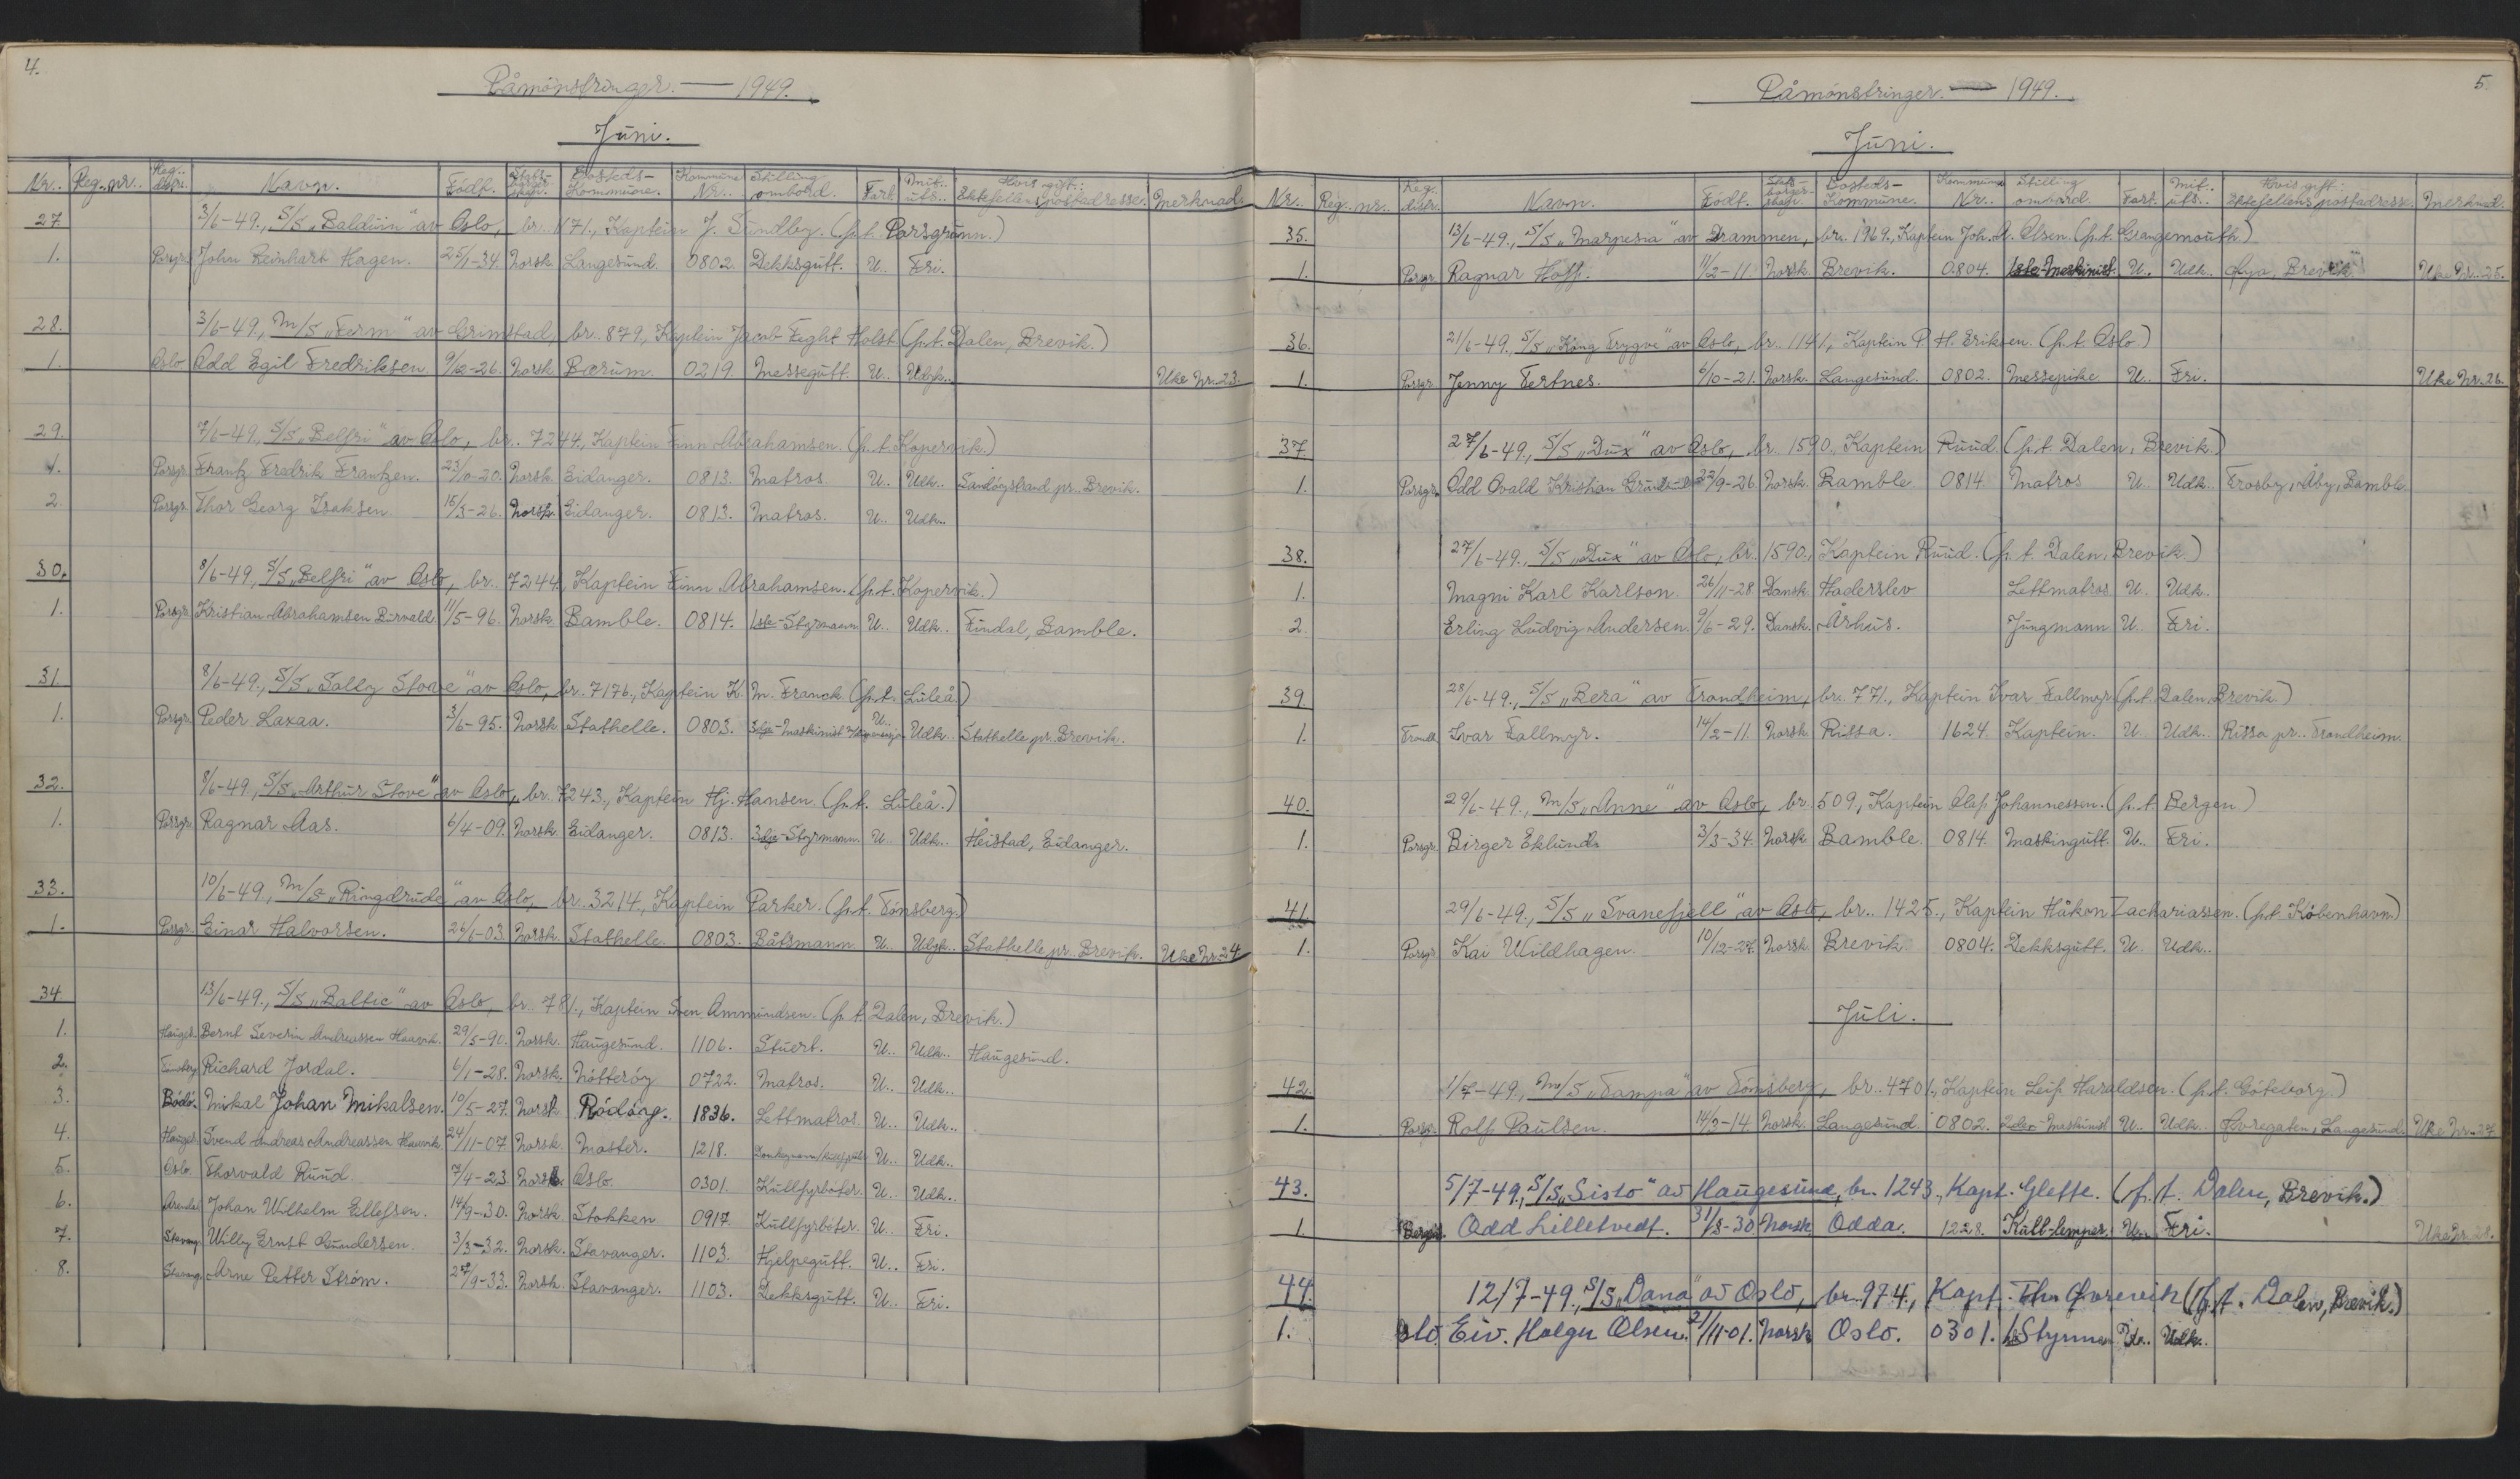 4.
Påmönstringer. — 1949.
Juni.
Nr.. Reg. nr.. Reg.. distr. Navn. Födt. Stats-borger-skap. Bosteds-Kommune. Kommune Nr.. Stilling ombord. Fart. Mil.. uts.. Hvis gift: Ektefellens postadresse. Merknad.
27. 3/6-49., S/S „Balduin" av Oslo, br. 1171., Kaptein J. Sundby. (p.t. Porsgrunn.)
1. Porsgr. John Reinhart Hagen. 25/1-34. Norsk. Langesund. 0802. Dekksgutt. U.. Fri.
28. 3/6-49., M/S „Ferm" av Grimstad, br. 879., Kaptein Jacob Holst (p.t. Dalen, Brevik.)
1. Oslo Odd Egil Fredriksen 9/12-26. Norsk Bærum. 0219. Messegutt. U.. Uk Nr. 23.
29. 7/6-49., S/S „Belfri" av Oslo, br. 7244., Kaptein Finn Abrahamsen. (p.t. Kopervik.)
1. Porsgr. Frantz Fredrik Frantzen. 23/10-20. Norsk. Eidanger. 0813. Matros. U.. Udk.. Sandöystrand pr. Brevik.
2. Porsgr. Thor Georg Isaksen. 15/3-26. Norsk. Eidanger. 0813. Matros. U.. Udk..
30. 8/6-49., S/S „Belfri" av Oslo, br. 7244., Kaptein Finn Abrahamsen. (p.t. Kopervik.)
1. Porsgr. Kristian Abrahamsen Burvald. 11/5-96. Norsk. Bamble. 0814. 1ste-Styrmann U.. Udk.. Findal, Bamble.
31. 8/6-49., S/S „Solly Stove" av Oslo, br. 7176., Kaptein K. M. Franck (p.t. Luleå.)
1. Porsgr. Peder Laxaa. 3/6-95. Norsk Stathelle. 0803. 3dje-Maskinist U.. Udk.. Stathelle pr. Brevik.
32. 8/6-49., S/S „Arthur Stove" av Oslo, br. 7243., Kaptein Hj. Hansen. (p.t. Luleå.)
1. Porsgr. Ragnar Aas. 6/4-09. Norsk. Eidanger. 0813. 3dje-Styrmann. U.. Udk.. Heistad, Eidanger.
33. 10/6-49., M/S „Ringdrude" av Oslo, br. 3214., Kaptein Parker. (p.t. Tönsberg.)
1. Porsgr. Einar Halvorsen. 24/6-03. Norsk. Stathelle. 0803. Båtsmann U.. Stathelle pr. Brevik. Uke Nr. 24
34 13/6-49., S/S „Baltic" av Oslo, br. 781., Kaptein Sven Ammundsen. (p.t. Dalen, Brevik.)
1. Hauges. Bernt Severin Andreassen Haavik. 29/5-90. Norsk. Haugesund. 1106. Stuert. U.. Udk.. Haugesund.
2. Tönsberg Richard Jordal. 6/1-28. Norsk. Nötteröy 0722. Matros. U.. Udk..
3. Bodö. Mikal Johan Mikalsen. 10/5-27. Norsk Rödöy. 1836. Lettmatros. U.. Udk..
4. Hauges. Svend Andreas Andreassen Haavik 24/11-07. Norsk. Moster. 1218. U.. Udk..
5. Oslo. Thorvald Ruud. 7/4-23. Norsk. Oslo. 0301. Kullfyrböter. U.. Udk..
6. Arendal Johan Wilhelm Ellefsen. 14/9-30. Norsk. Stokken 0917. Kullfyrböter. U.. Fri.
7. Stavang. Willy Ernst Gundersen. 3/3-32. Norsk. Stavanger. 1103. Hjelpegutt. U.. Fri.
8. Stavang. Arne Petter Ström. 27/9-33. Norsk. Stavanger. 1103. Dekksgutt. U.. Fri.
5.
Påmönstringer. — 1949.
Juni.
Nr.. Reg. nr.. Reg. distr. Navn. Födt. Stats-borger-skap. Bosteds-Kommune. Kommune Nr.. Stilling ombord. Fart. Mil.. uts.. Hvis gift: Ektefellens postadresse. Merknad.
35. 13/6-49., S/S „Marpesia" av Drammen, br. 1969., Kaptein Joh. A. Olsen. (p.t. Grangemouth.)
1. Porsgr. Ragnar Hoff. 11/2-11 Norsk Brevik. 0804. 1ste-Maskinist. U.. Udk. Öya, Brevik. Uke Nr. 25.
36. 21/6-49., S/S „Kong Trygve" av Oslo, br. 1141., Kaptein P. H. Eriksen. (p.t. Oslo.)
1. Porsgr. Jenny Tertnes. 6/10-21. Norsk. Langesund. 0802. Messepike U.. Fri. Uke Nr. 26.
37. 27/6-49., S/S „Dux" av Oslo, br. 1590., Kaptein Ruud. (p.t. Dalen, Brevik.)
1. Porsgr. Odd Ovald Kristian 22/9-26 Norsk. Bamble. 0814. Matros U.. Udk.. Trosby, Åby, Bamble.
38. 27/6-49., S/S „Dux" av Oslo, br. 1590., Kaptein Ruud. (p.t. Dalen, Brevik.)
1. Magni Karl Karlson. 26/11-28 Dansk. Haderslev Lettmatros U. Udk.
2. Erling Ludvig Andersen. 9/6-29. Dansk. Århus. Jungmann U.. Fri.
39. 28/6-49., S/S „Bera" av Trondheim, br. 771., Kaptein Ivar Fallmyr (p.t. Dalen, Brevik.)
1. Trondh. Ivar Fallmyr. 14/2-11 Norsk. Rissa. 1624. Kaptein. U. Udk.. Rissa pr.. Trondheim.
40. 29/6-49., M/S „Anne" av Oslo, br. 509., Kaptein Olaf Johannessen. (p.t. Bergen.)
1. Porsgr. Birger Eklund. 3/3-34. Norsk. Bamble. 0814. Maskingutt. U.. Fri.
41. 29/6-49., S/S „Svanefjell" av Oslo, br.. 1425., Kaptein Håkon Zachariassen. (p.t. Köbenhavn.)
1. Porsgr. Kai Wildhagen. 10/12-27. Norsk. Brevik. 0804. Dekksgutt. U.. Udk..
Juli.
42. 1/7-49., M/S „Tampa" av Tönsberg, br.. 4701., Kaptein Leif Haraldsen. (p.t. Göteborg.)
1. Porsgr. Rolf Paulsen. 14/3-14. Norsk. Langesund. 0802. 2den-Maskinist U.. Udk.. Övregaten, Langesund. Uke Nr. 27
43. 5/7-49., S/S „Sisto" av Haugesund, br. 1243., Kapt. Glette. (p.t. Dalen, Brevik.)
1. Odd Lilletvedt. 31/8-30. Norsk Odda. 1228. Kull-lemper. U.. Fri. Uke Nr. 28.
44. 12/7-49., S/S „Dana" av Oslo, br. 974., Kapt. Th. Övrevik (p.t. Dalen, Brevik.)
1. Oslo. Eiv. Holger Olsen. 21/11-01. Norsk Oslo. 0301. Styrmann U.. Udk.